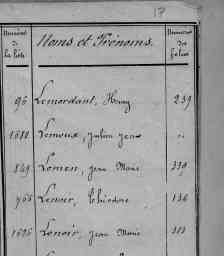 17
Numéros de la liste Noms et Prénoms. Numéros des folios
96 Lemordant, Henry 239
1682 Lemoux, Julien Jean "
849 Lemen, Jean Marie 339
768 Lenoir, Théodore 136
1696 Lenoir, Jean Marie 313